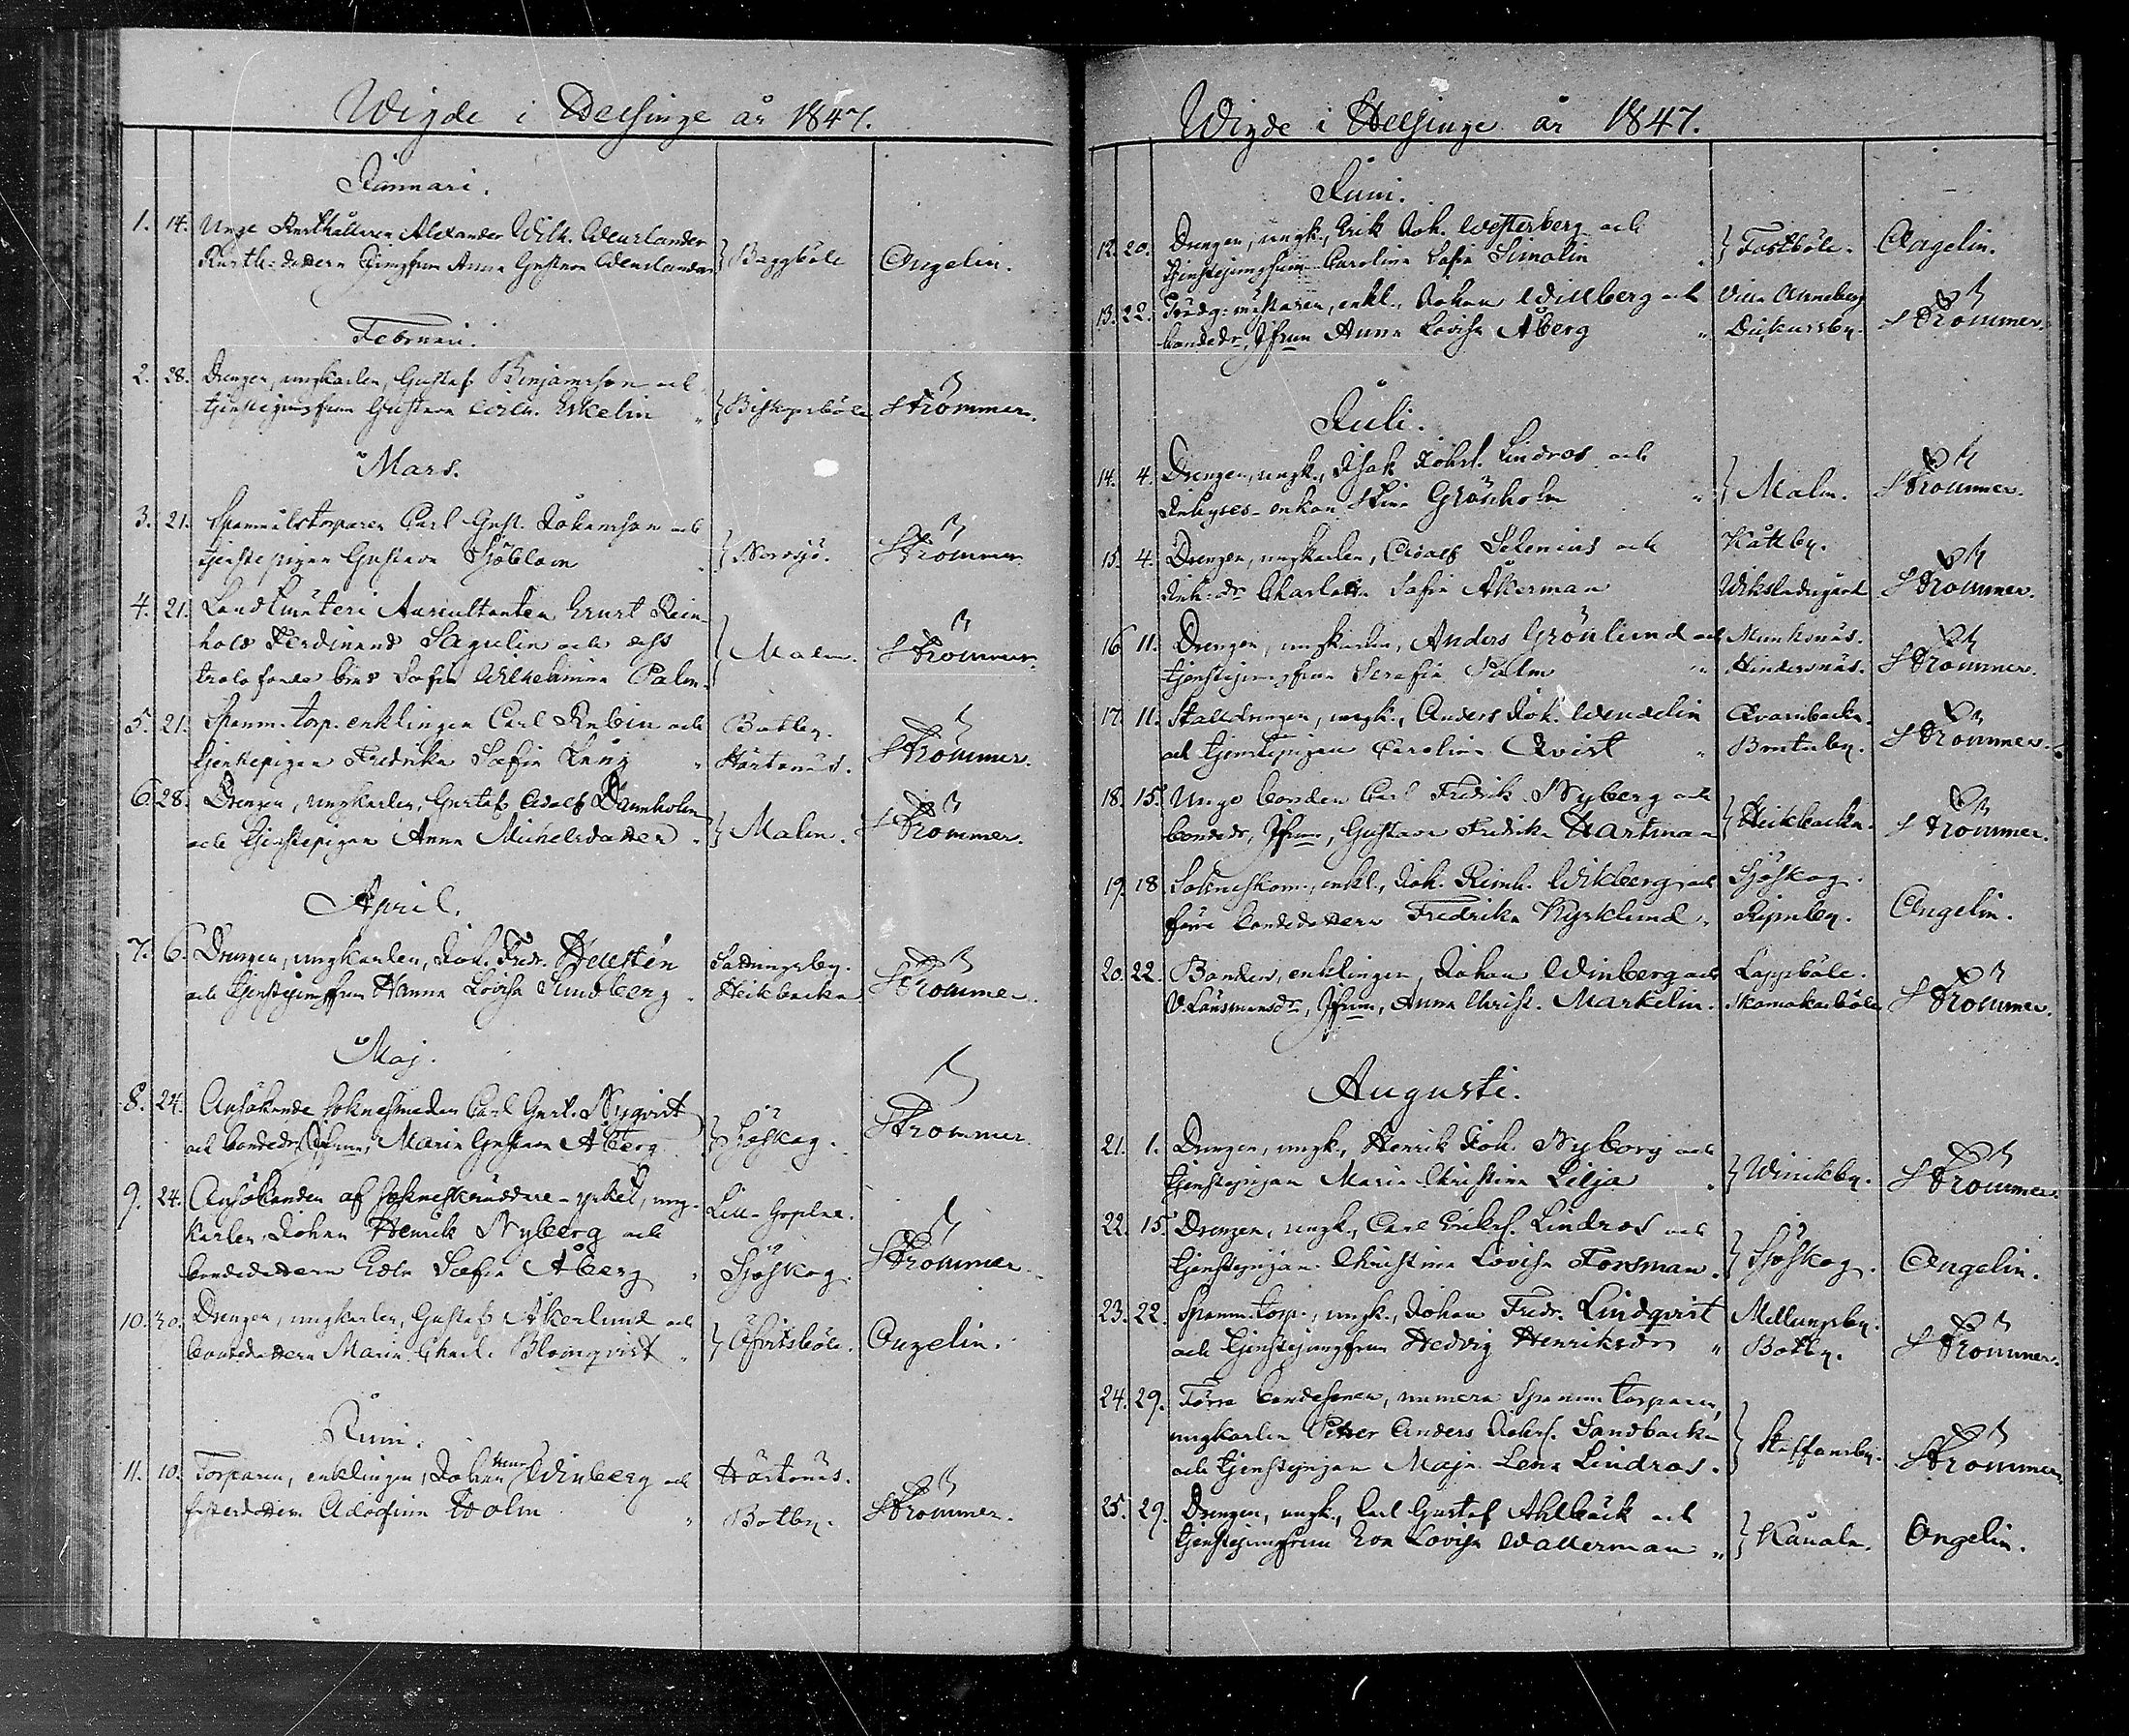 Wigde i Helsinge år 1847.
Januari.
1. 14. Unge Rusthållaren Alexander Wilh. Wenlander
Rusth: dottern Jungfrun Anna Gustava Wenlander } Baggböle Angelin.
Februari.
2. 28. Drengen, ungkarlen, Gustaf Benjamsson och
tjenstejungfrun Gustava Eskelin " } Biskopsböle Strömmer.
Mars.
3. 21. Spanmålstorparen Carl Gust. Johansson och
tjenstepigan Gustava Sjöblom " } Nordsjö. Strömmer.
4. 21. Landtmäteri Auscultanten Ernst Rein-
hold Ferdinand Sagulin och dess
trolofvade Sofia Wilhelmina Palm " } Malm. Strömmer.
5. 21. Spanm. torp. enklingen Carl Rubin och Botby.
tjenstepigan Fredrika Sofia Kung " Härtonäs. Strömmer.
6. 28. Drengen, ungkarlen, Gustaf Adolf Dannholm
och tjenstepigan Anna Michelsdotter " } Malm. Strömmer.
April.
7. 6. Drengen, ungkarlen, Joh. Fredr. Hellstén Sottungsby.
och tjenstejungfrun Hanna Lovisa Sundberg " Heikbacka Strömmer.
Maj.
8. 24. Ansökande soknesmeden Carl Gust. Nyqvist
och bondedr, Jfrun, Maria Gustava Åberg } Sjöskog. Strömmer.
9. 24. Ansökanden af sokneskräddare-yrket, ung- Lill-Hoplax.
karlen Johan Henrik Nyberg och
bondedottern Edla Sofia Åberg " Sjöskog. Strömmer.
10. 30. Drengen, ungkarlen, Gustaf Åkerlund och
bondedottern Maria Charl. Blomqvist " } Öfvitsböle. Angelin.
Juni.
11. 10. Torparen, enklingen, Johan Henr. Winberg och Härtonäs.
Adolfina Holm " Botby. Strömmer.
Wigde i Helsinge år 1847.
Juni.
12. 20. Drengen, ungk., Erik Joh. Westerberg och
tjenstejungfrun Carolina Sofia Simolin " } Fastböle. Angelin.
13. 22. Trädg: mästaren, enkl., Johan Willberg och Villa Anneberg
bondedr, Jfrun Anna Lovisa Åberg " Dickursby. Strömmer.
Juli.
14. 4. Drengen, ungk., Isak Johss. Lindros och
Inhyses-enkan Stina Grönholm " } Malm. Strömmer.
15. 4. Drengen, ungkarlen, Adolf Selenius och Kåttby.
Inh: dr Charlotta Sofia Åkerman Wiksladugård Strömmer.
16 11. Drengen, ungkarlen, Anders Grönlund och Munksnäs.
tjenstejungfrun Serafia Palm " Hindersnäs. Strömmer.
17. 11. Stalldrengen, ungk., Anders Joh. Wendelin Qvarnbacka.
och tjenstepigan Carolina Qvist " Brutuby. Strömmer.
18. 15. Unge bonden Carl Fredrik Nyberg och
bondedr, Jfrun, Gustava Fredrika Hartman } Heikbacka. Strömmer.
19. 18. Sokneskom., enkl., Joh. Reinh. Wikberg och Sjöskog.
förra bondedottern Fredrika Kyrklund " Ripuby. Angelin.
20. 22. Bonden, enklingen, Johan Winberg och Lappböle.
V. Länsmansdr, Jfrun, Anna Christ. Markelin. Skomakarböle Strömmer.
Augusti.
21. 1. Drengen, ungk., Henrik Joh. Nyborg och
tjenstepigan Maria Christina Lilja " } Winikby. Strömmer.
22. 15. Drengen, ungk., Carl Erikss. Lindros och
tjenstepigan Christina Lovisa Forsman " } Sjöskog. Angelin.
23. 22. Spanm. torp., ungk., Johan Fredr. Lindqvist Mellungsby.
och tjenstejungfrun Hedvig Henriksdr " Botby. Strömmer.
24. 29. Förra bondesonen, numera Spanm. torparen,
ungkarlen Petter Anders Johss. Sandbacka
och tjenstepigan Maja Lena Lindros. } Staffansby. Strömmer.
25. 29. Drengen, ungk., Carl Gustaf Ahlbäck och
tjenstejungfrun Eva Lovisa Wallerman " } Kånala. Angelin.